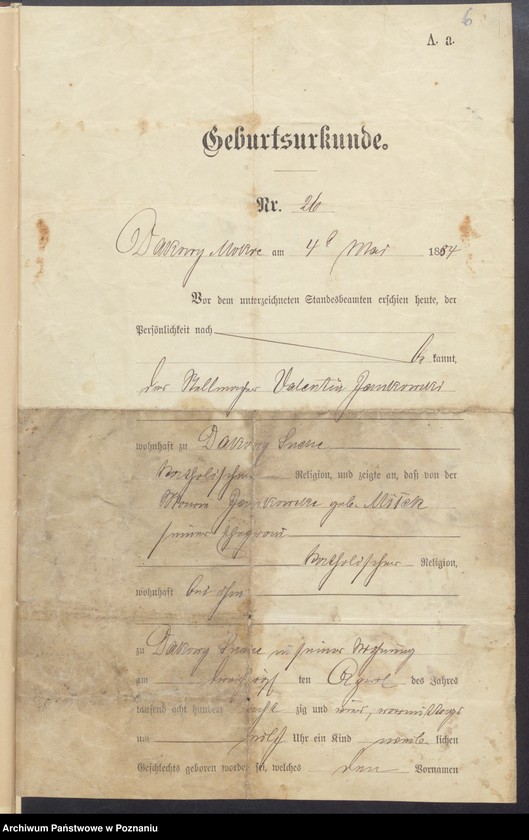 6
A. a.
Geburtsurkunde.
Nr. 26
Dakowy Mokre am 4 Mai 1884
Vor dem unterzeichneten Standesbeamten erschien heute, der
Persönlichkeit nach
be kannt,
der Stellmacher Valentin Jankowski
wohnhaft zu Dakowy Suche
katholischer Religion, und zeigte an, daß von der
Jankowska geb. Misiek
seiner Ehefrau
katholischer Religion,
wohnhaft bei ihm
zu Dakowy Suche in seiner Wohnung
am ten April des Jahres
tausend acht hundert acht zig und vier, vormittags
um Uhr ein Kind weib lichen
Geschlechts geboren worden sei, welches den Vornamen
Archiwum Państwowe w Poznaniu